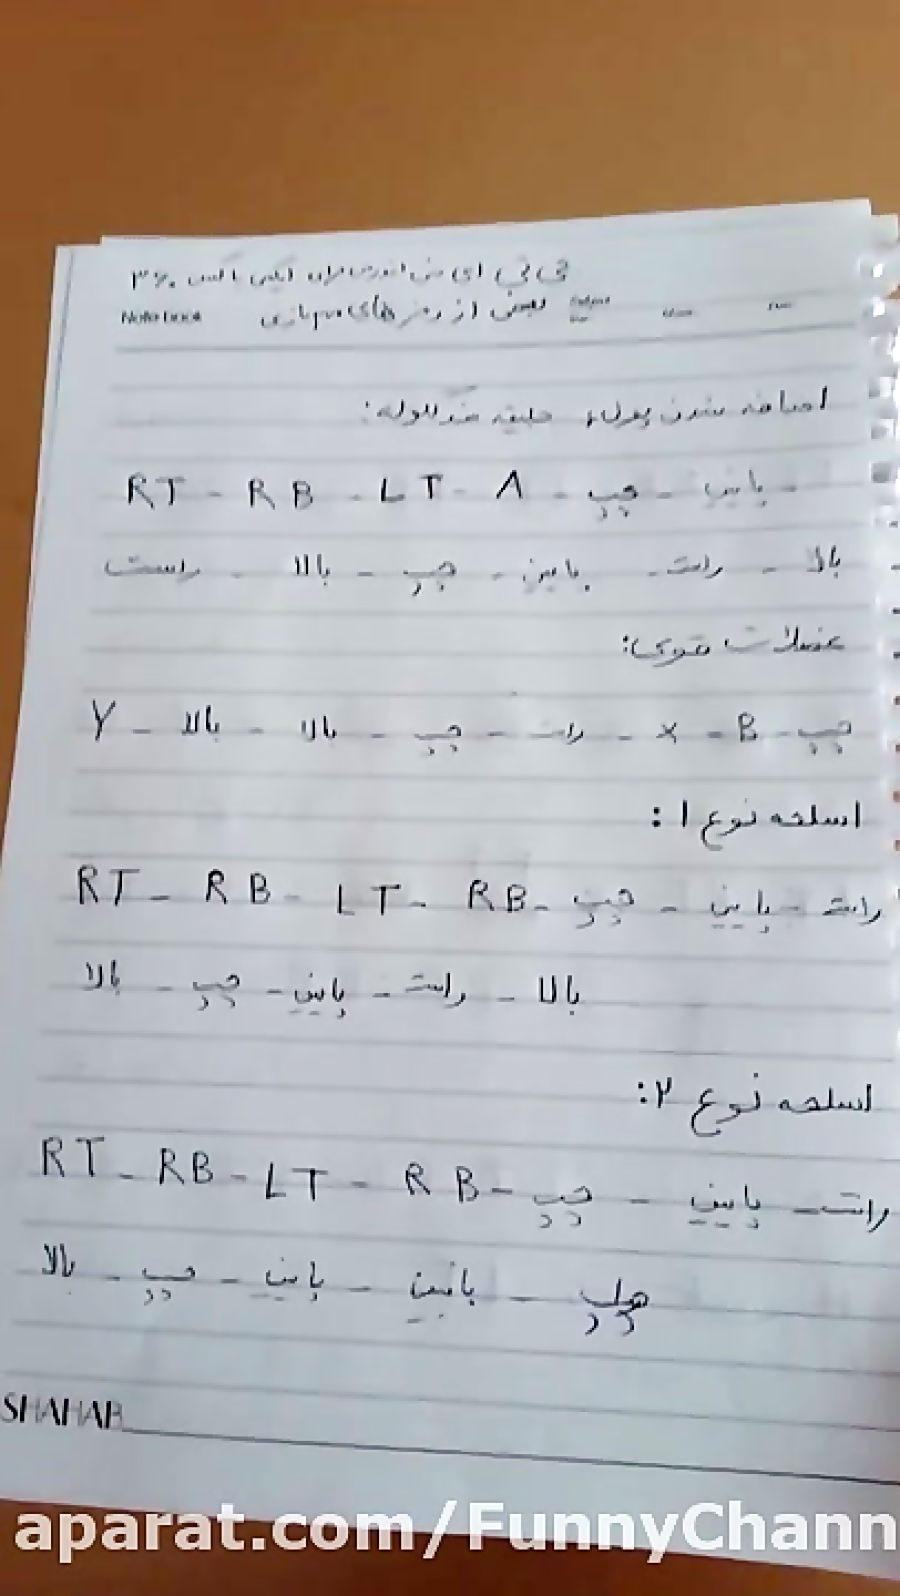 جی تی ای سن اندریاس برای ایکس باکس ۳۶۰
Note book بعضی از رمز های بازی
اضافه شدن پول، جلیقه ضدگلوله:
RT - RB - LT - A - چپ - پایین -
راست - بالا - چپ - پایین - راست - بالا
عضلات قوی:
Y - بالا - بالا - چپ - راست - X - B - چپ
اسلحه نوع ۱:
RT - RB - LT - RB - چپ - پایین - راست
بالا - راست - پایین - چپ - بالا
اسلحه نوع ۲:
RT - RB - LT - RB - چپ - پایین - راست
چپ - پایین - پایین - چپ - بالا
SHAHAB
aparat.com/FunnyChann